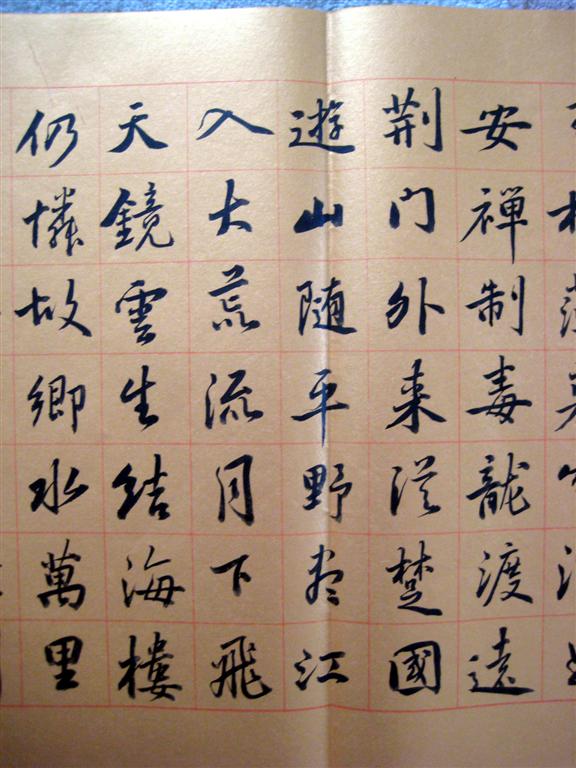 安禪制毒龍渡遠
荆门外来從楚國
遊山随平野尽江
入大荒流月下飛
天鏡雲生結海樓
仍憐故鄉水萬里